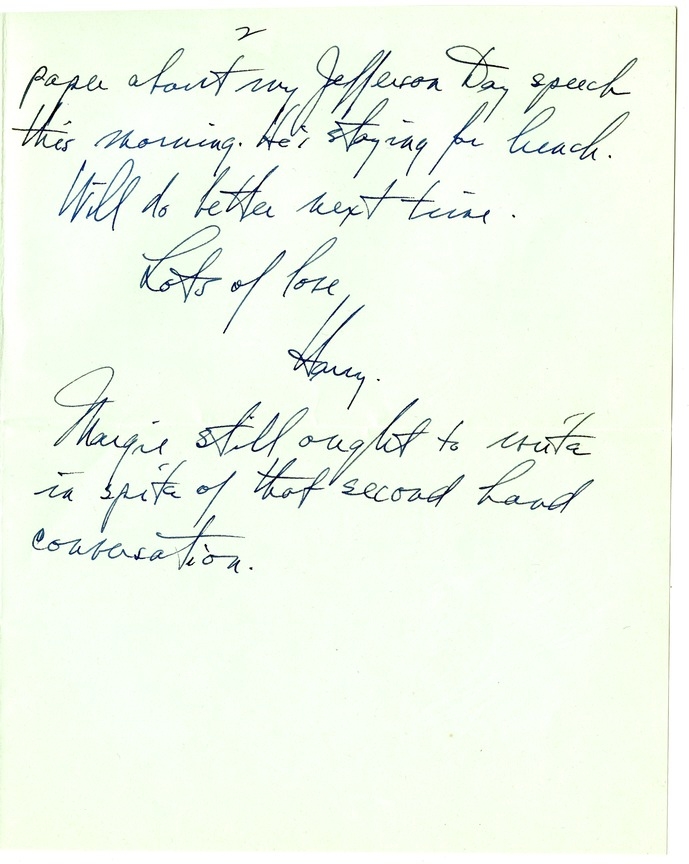 2
paper about my Jefferson Day speech
this morning. He's staying for lunch.
Will do better next time.
Lots of love,
Harry.
Margie still ought to write
in spite of that second hand
conversation.